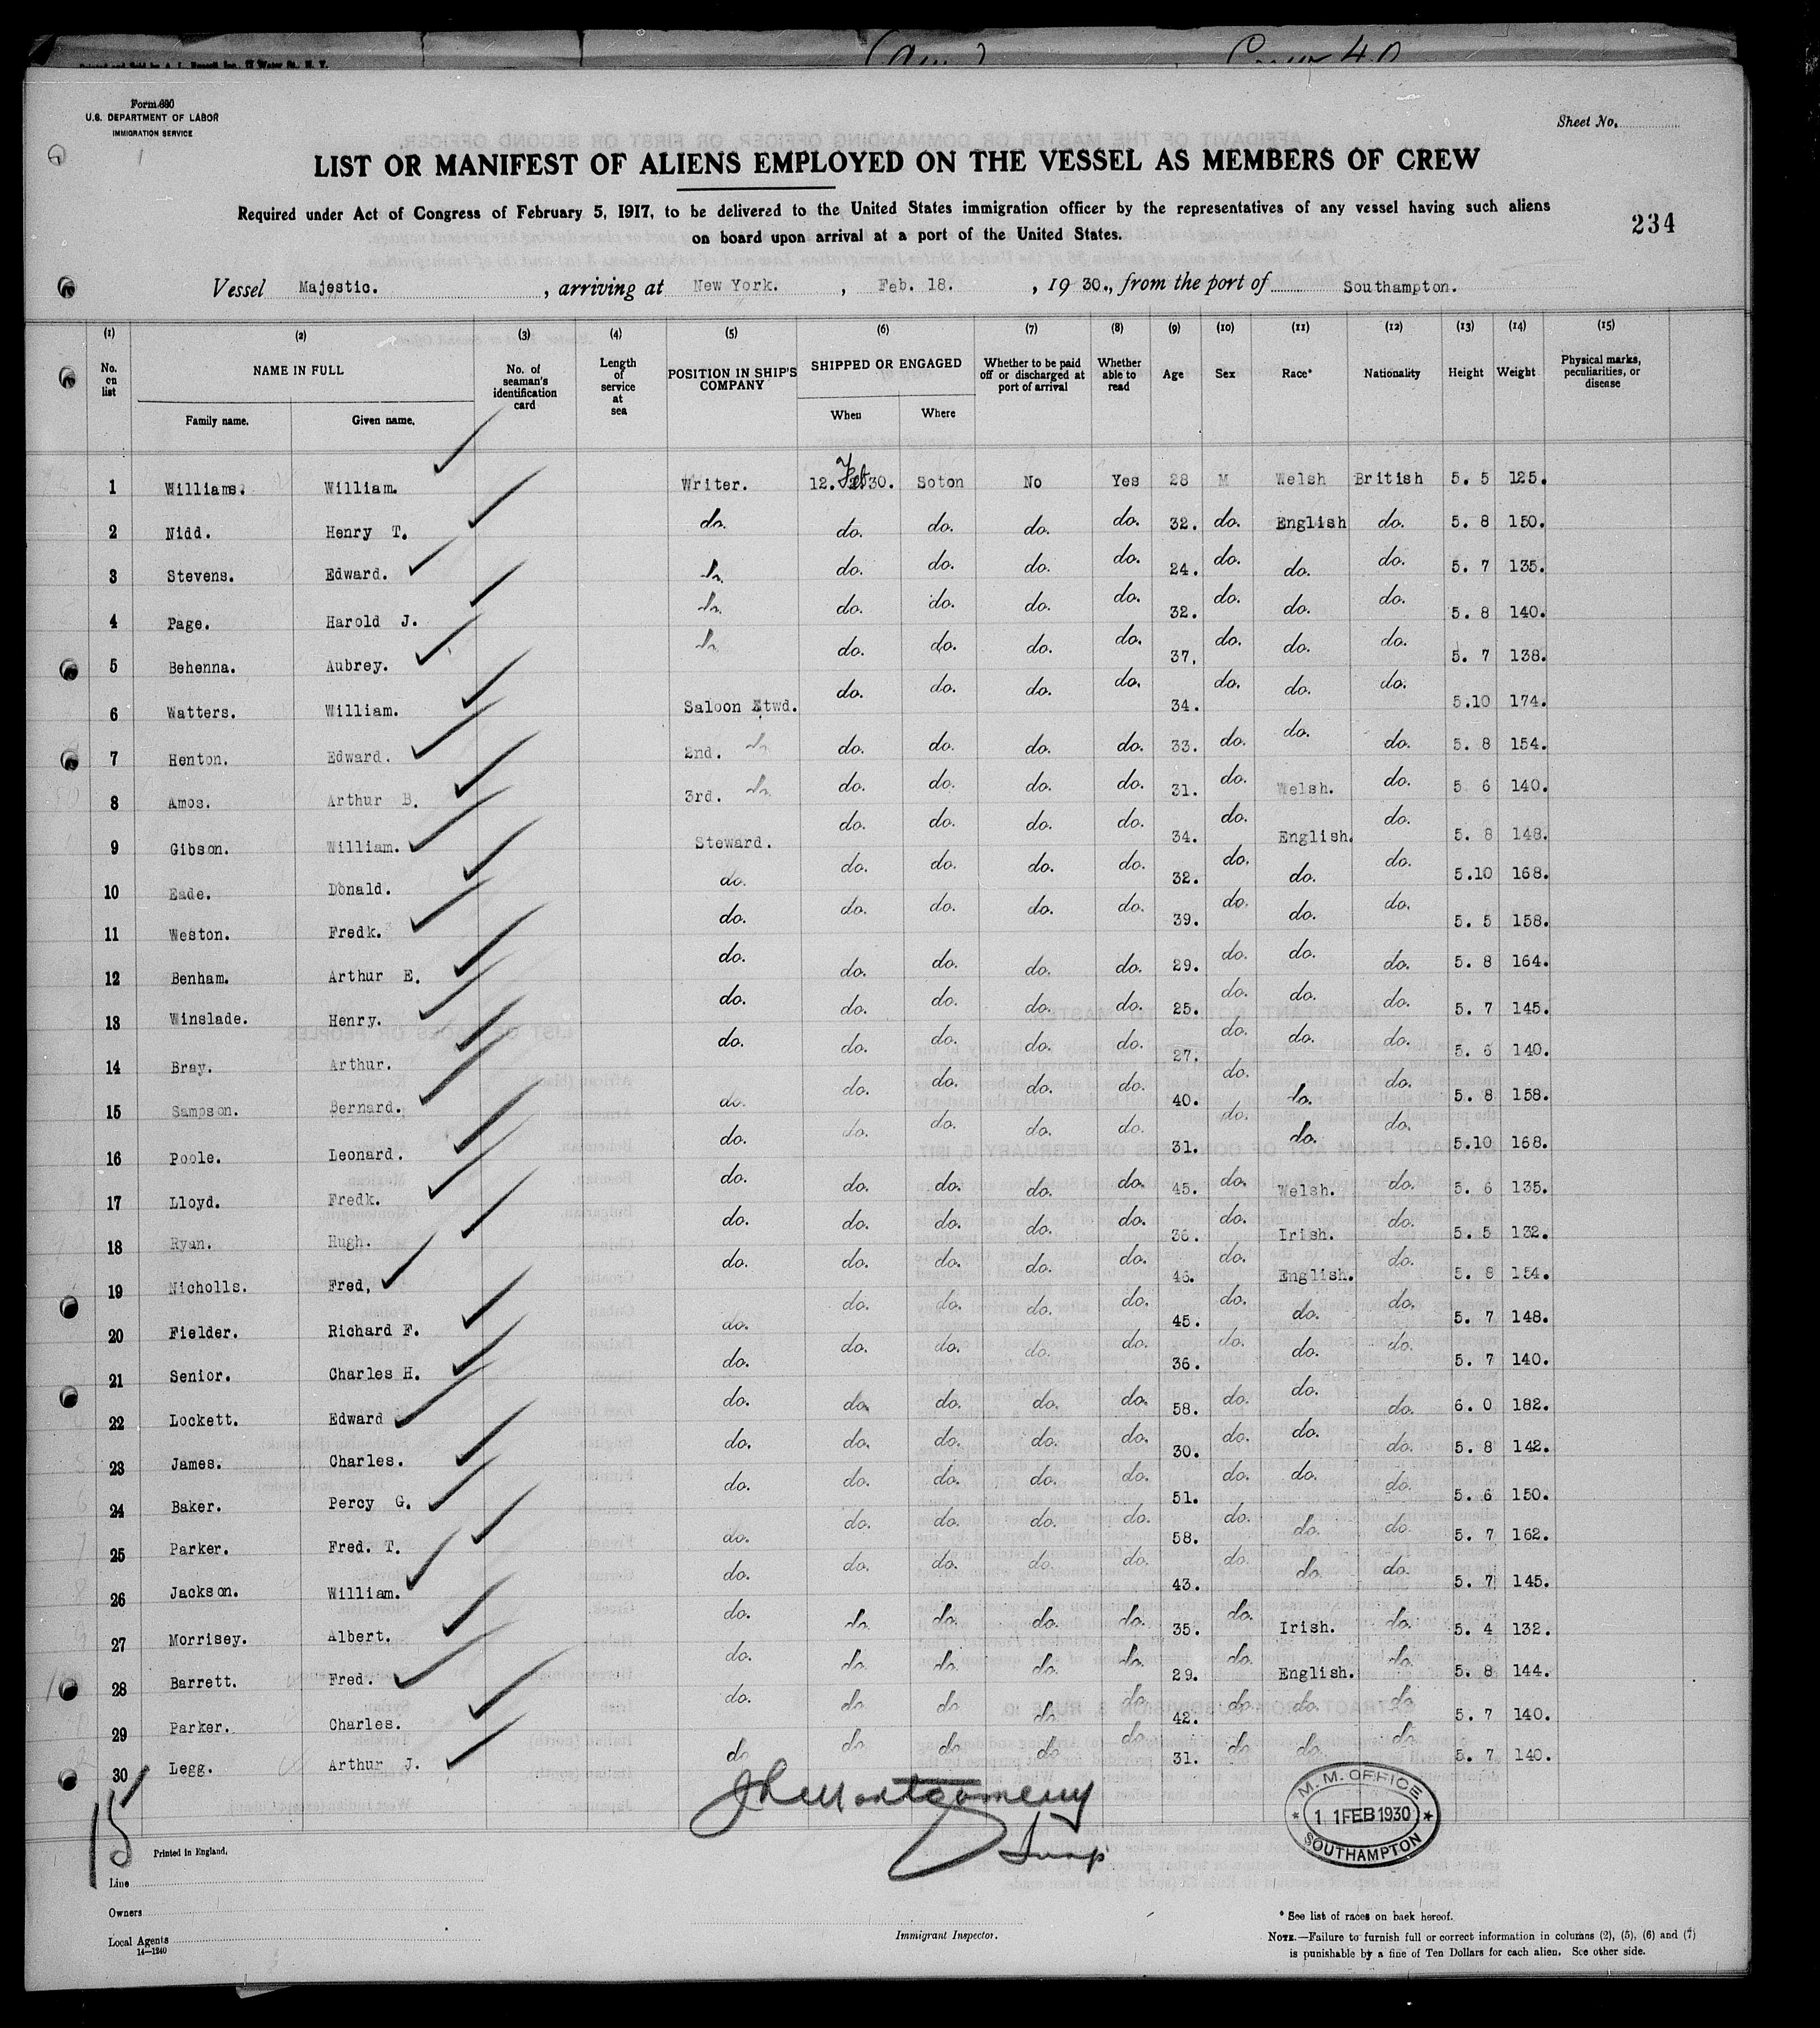 Form 680
U.S. DEPARTMENT OF LABOR
IMMIGRATION SERVICE
Sheet No.
LIST OR MANIFEST OF ALIENS EMPLOYED ON THE VESSEL AS MEMBERS OF CREW
Required under Act of Congress of February 5, 1917, to be delivered to the United States immigration officer by the representatives of any vessel having such aliens
on board upon arrival at a port of the United States.
234
Vessel Majestic. , arriving at New York. , Feb. 18. , 19 30., from the port of Southampton.
(1) (2) (3) (4) (5) (6) (7) (8) (9) (10) (11) (12) (13) (14) (15)
No. on list NAME IN FULL Family name. Given name. No. of seaman's identification card Length of service at sea POSITION IN SHIP'S COMPANY SHIPPED OR ENGAGED When Where Whether to be paid off or discharged at port of arrival Whether able to read Age Sex Race* Nationality Height Weight Physical marks, peculiarities, or disease
1 Williams. William. Writer. 12. Feb 30. Soton No Yes 28 M Welsh British 5. 5 125.
2 Nidd. Henry T. do. do. do. do. do. 32. do. English do. 5. 8 150.
3 Stevens. Edward. do. do. do. do. do. 24. do. do. do. 5. 7 135.
4 Page. Harold J. do. do. do. do. do. 32. do. do. do. 5. 8 140.
5 Behenna. Aubrey. do. do. do. do. do. 37. do. do. do. 5. 7 138.
6 Watters. William. Saloon Stwd. do. do. do. do. 34. do. do. do. 5.10 174.
7 Henton. Edward. 2nd. do. do. do. do. do. 33. do. do. do. 5. 8 154.
8 Amos. Arthur B. 3rd. do. do. do. do. do. 31. do. Welsh. do. 5 6 140.
9 Gibson. William. Steward. do. do. do. do. 34. do. English. do. 5. 8 148.
10 Eade. Donald. do. do. do. do. do. 32. do. do. do. 5.10 168.
11 Weston. Fredk. do. do. do. do. do. 39. do. do. do. 5. 5 158.
12 Benham. Arthur E. do. do. do. do. do. 29. do. do. do. 5. 8 164.
13 Winslade. Henry. do. do. do. do. do. 25. do. do. do. 5. 7 145.
14 Bray. Arthur. do. do. do. do. do. 27. do. do. do. 5. 6 140.
15 Sampson. Bernard. do. do. do. do. do. 40. do. do. do. 5. 8 158.
16 Poole. Leonard. do. do. do. do. do. 31. do. do. do. 5.10 168.
17 Lloyd. Fredk. do. do. do. do. do. 45. do. Welsh. do. 5. 6 135.
18 Ryan. Hugh. do. do. do. do. do. 36. do. Irish. do. 5. 5 132.
19 Nicholls. Fred, do. do. do. do. do. 46. do. English. do. 5. 8 154.
20 Fielder. Richard F. do. do. do. do. do. 45. do. do. do. 5. 7 148.
21 Senior. Charles H. do. do. do. do. do. 36. do. do. do. 5. 7 140.
22 Lockett. Edward do. do. do. do. do. 58. do. do. do. 6. 0 182.
23 James. Charles. do. do. do. do. do. 30. do. do. do. 5. 8 142.
24 Baker. Percy G. do. do. do. do. do. 51. do. do. do. 5. 6 150.
25 Parker. Fred. T. do. do. do. do. do. 58. do. do. do. 5. 7 162.
26 Jackson. William. do. do. do. do. do. 43. do. do. do. 5. 7 145.
27 Morrisey. Albert. do. do. do. do. do. 35. do. Irish. do. 5. 4 132.
28 Barrett. Fred. do. do. do. do. do. 29. do. English. do. 5. 8 144.
29 Parker. Charles. do. do. do. do. do. 42. do. do. do. 5. 7 140.
30 Legg. Arthur J. do do do do do 31. do do do 5. 7 140.
15
Montgomery
Insp
M. M. OFFICE
11 FEB 1930
SOUTHAMPTON
Printed in England.
Line
Owners
Local Agents
14—1240
Immigrant Inspector.
* See list of races on back hereof.
NOTE.—Failure to furnish full or correct information in columns (2), (5), (6) and (7)
is punishable by a fine of Ten Dollars for each alien. See other side.